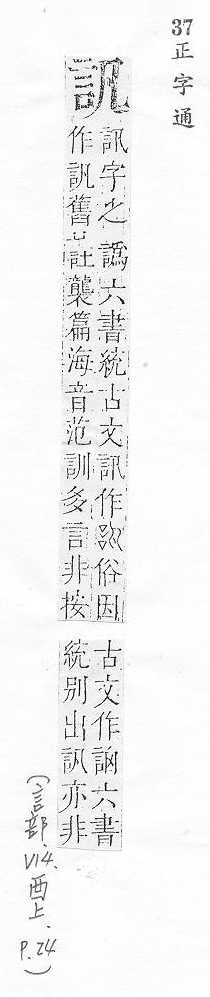 37
正字通
訉
訊字之譌六書統古文訊作俗因
作訉舊註襲篇海音范訓多言非按
古文作六書
統別出訉亦非
(言部. V14. 酉上. P.24)